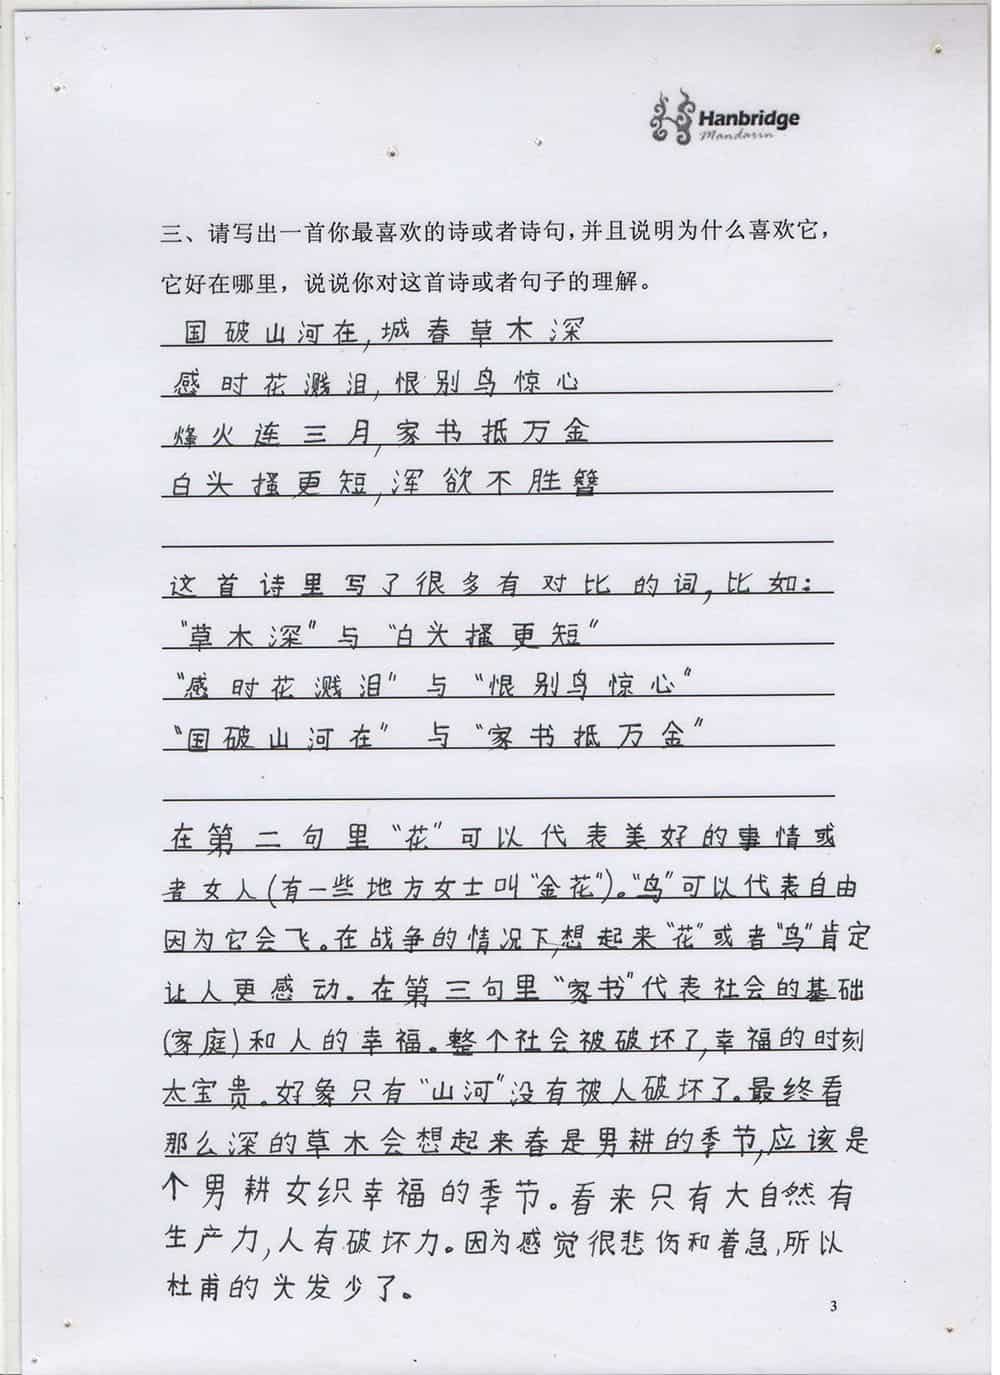 Hanbridge
Mandarin
三、请写出一首你最喜欢的诗或者诗句，并且说明为什么喜欢它，
它好在哪里，说说你对这首诗或者句子的理解。
国破山河在,城春草木深
感时花溅泪,恨别鸟惊心
烽火连三月,家书抵万金
白头搔更短,浑欲不胜簪
这首诗里写了很多有对比的词,比如:
"草木深"与"白头搔更短"
"感时花溅泪"与"恨别鸟惊心"
"国破山河在"与"家书抵万金"
在第二句里"花"可以代表美好的事情或
者女人(有一些地方女士叫"金花")。"鸟"可以代表自由
因为它会飞。在战争的情况下,想起来"花"或者"鸟"肯定
让人更感动。在第三句里"家书"代表社会的基础
(家庭)和人的幸福。整个社会被破坏了,幸福的时刻
太宝贵。好象只有"山河"没有被人破坏了。最终看
那么深的草木会想起来春是男耕的季节,应该是
个男耕女织幸福的季节。看来只有大自然有
生产力,人有破坏力。因为感觉很悲伤和着急,所以
杜甫的头发少了。
3